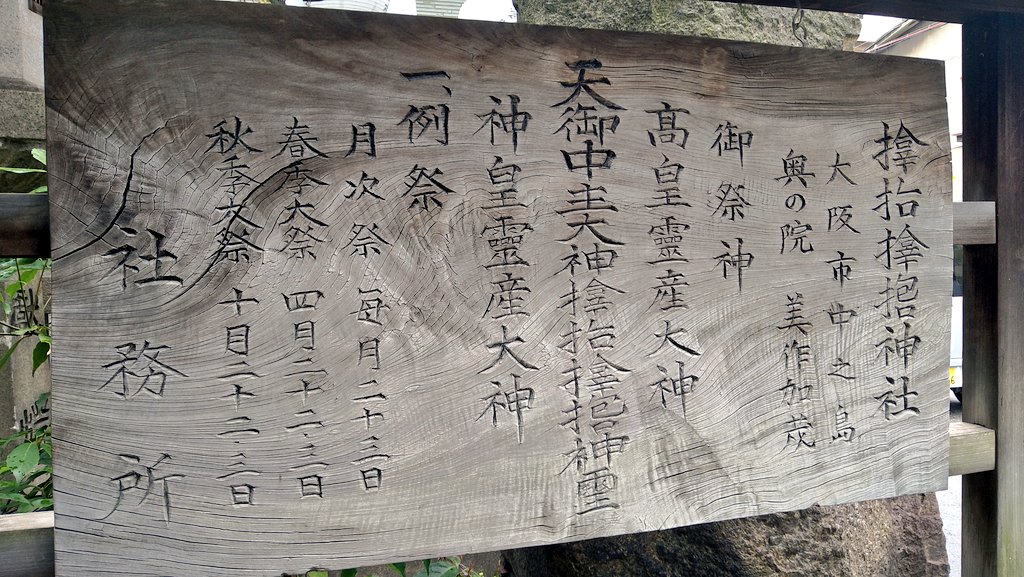 𪮷𫝓𪮷𫝕神社
大阪市中之島
奥の院 美作加茂
御祭神
髙皇靈産大神
天御中主大神𪮷𫝓𪮷𫝕神聖
神皇靈産大神
一、例祭
月次祭 毎月二十三日
春季大祭 四月二十二・三日
秋季大祭 十月二十二・三日
社務所